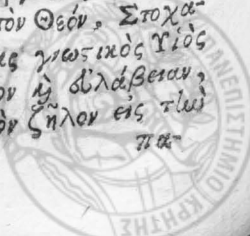 τὸν Θεόν, Στοχα-
ας γνωστικὸς Υἱὸς
ον ϗ εὐλάβειαν,
ὸν ζῆλον εἰς τὴν
πα-
ΠΑΝΕΠΙΣΤΗΜΙΟ ΚΡΗΤΗΣ